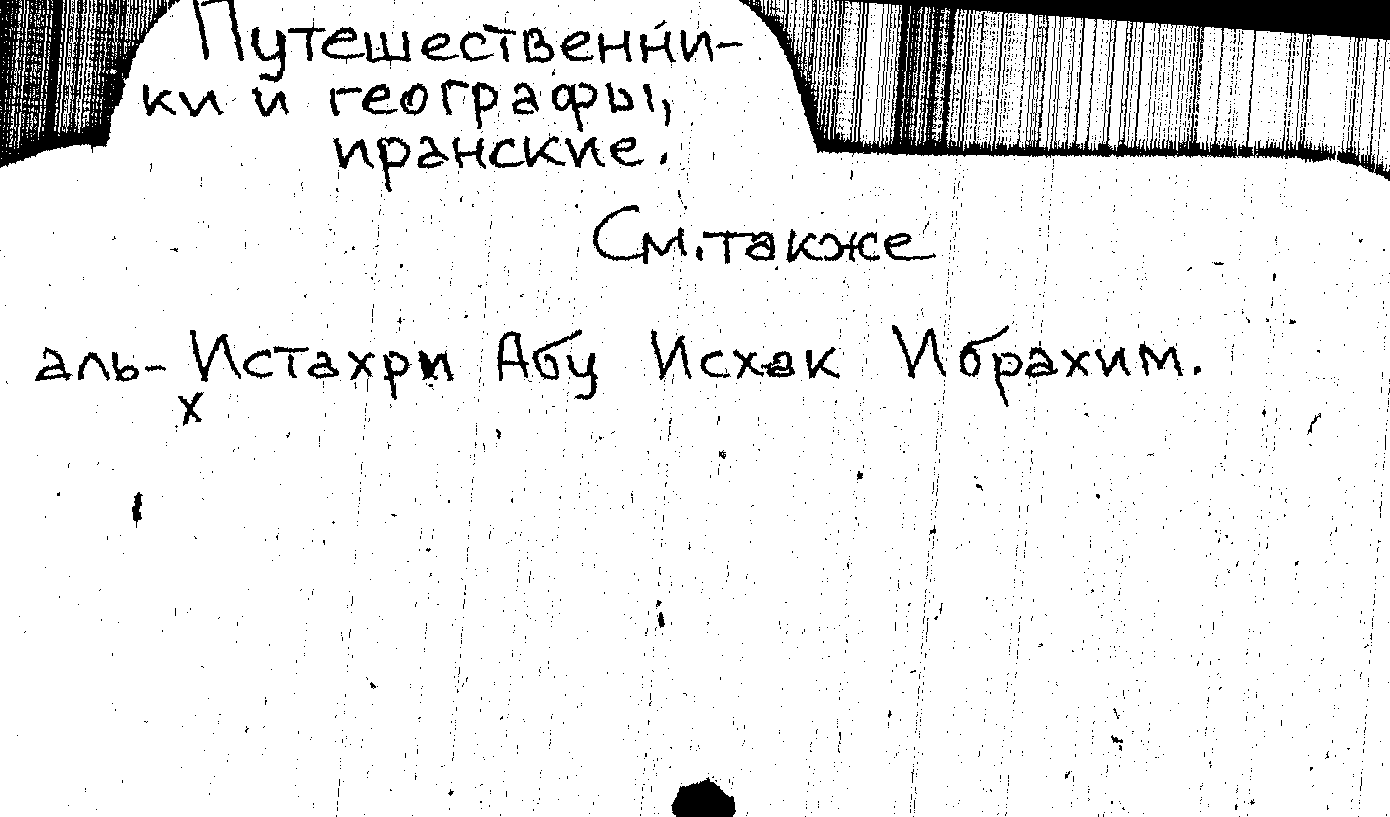 Путешественни-
ки и географы,
иранские.
См. также
аль-Истахри Абу Исхак Ибрахим.
х